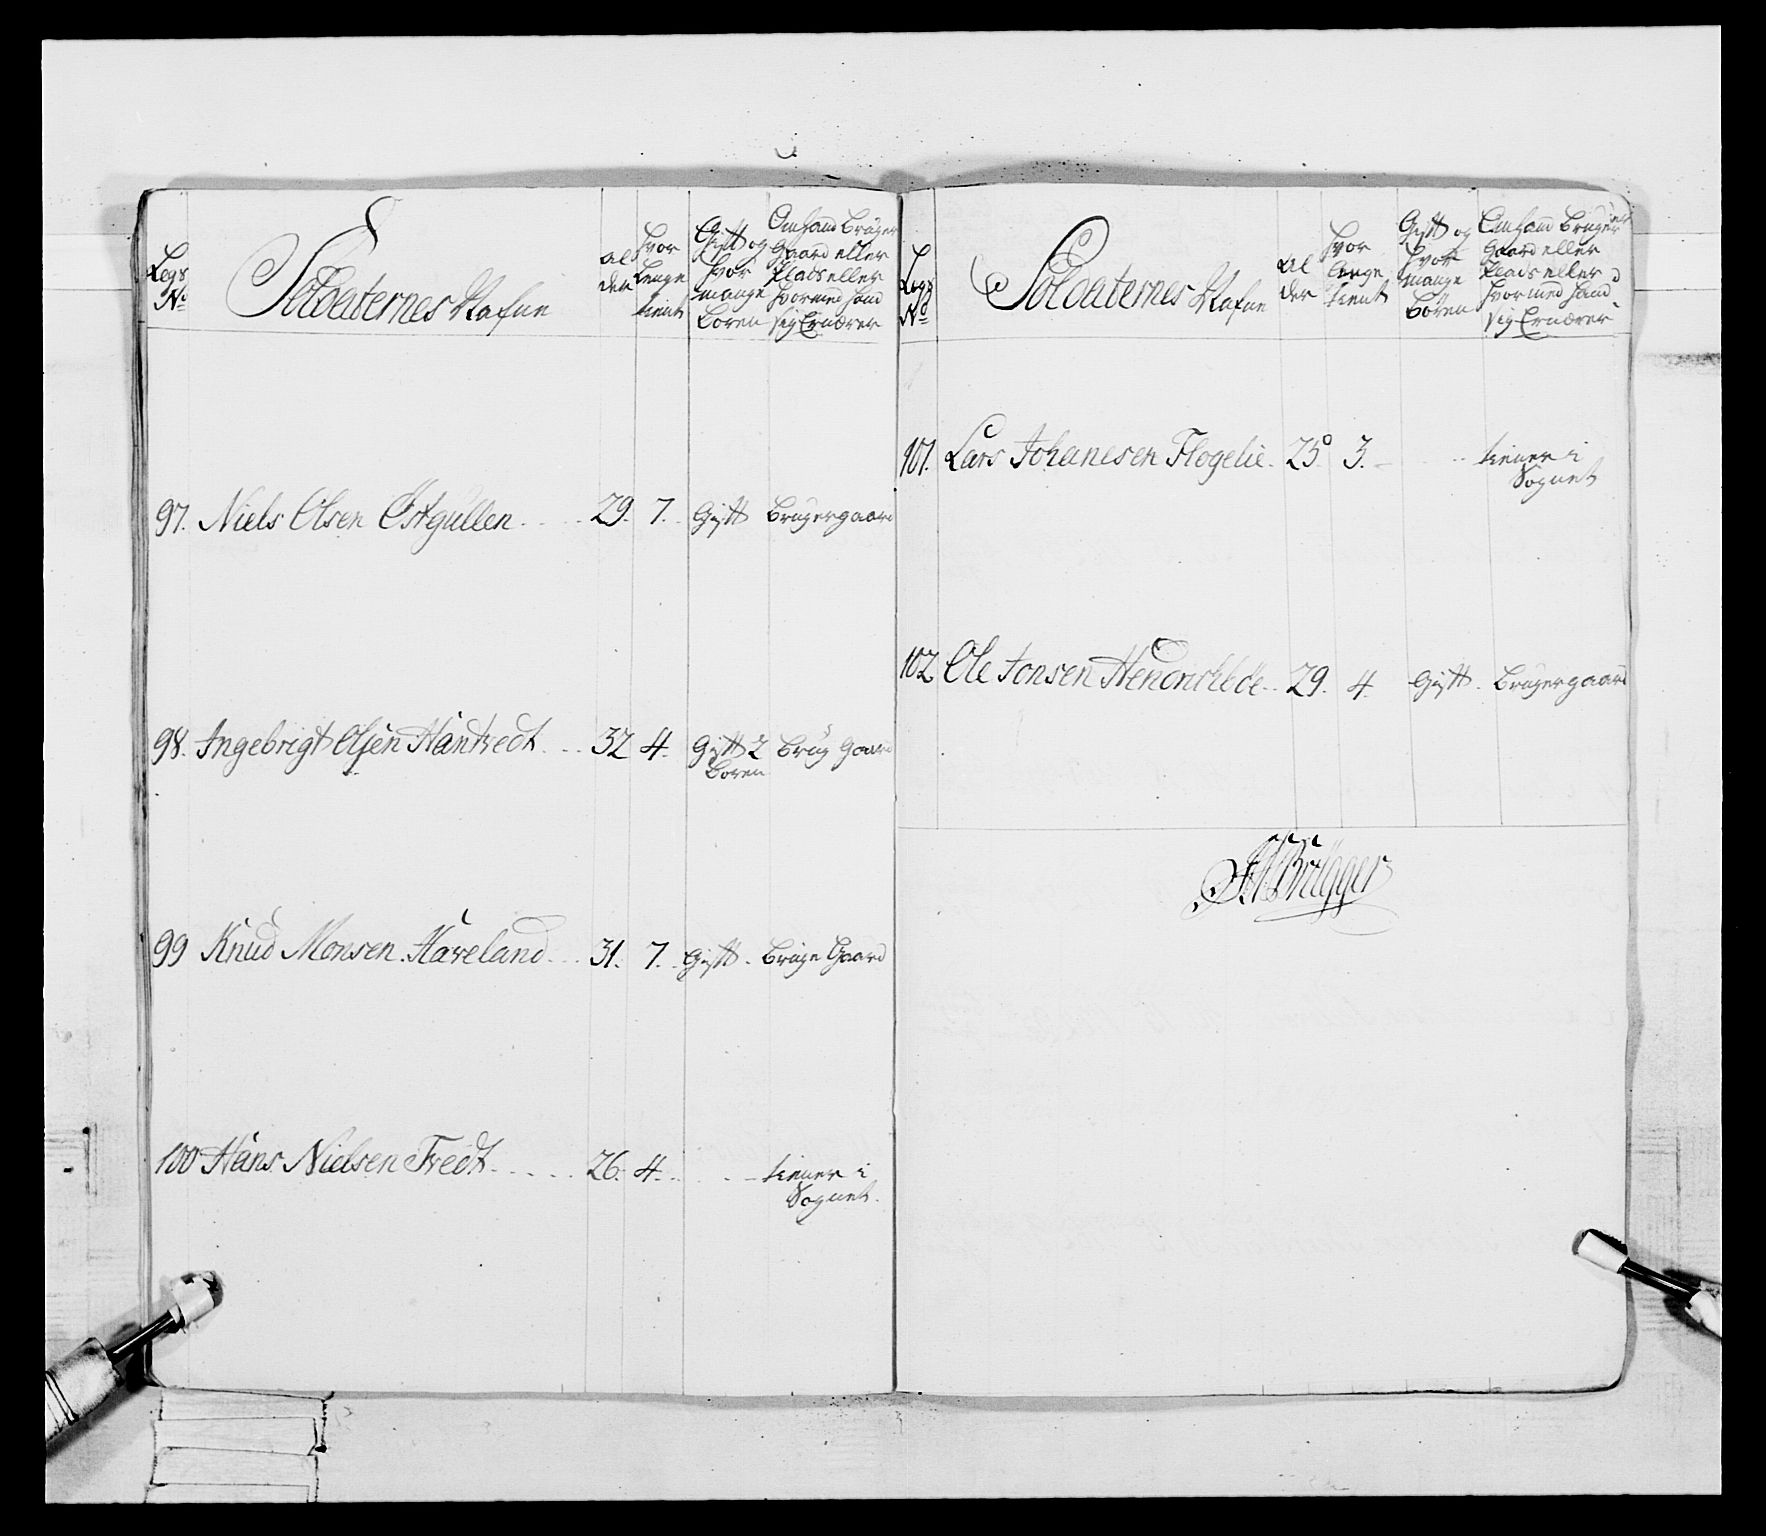 Legs No
Soldaternes Nafne
Al der
hvor Lenge tient
Gift og hvor mange Boren
Om hand Bruger Gaard eller Plads eller hvormed hand sig Ernærer
97. Niels Olsen Østgullen 29. 7. Gift Bruger gaard
98. Ingebrigt Olsen Hantvedt 32 4. Gift 2 Brug Gaard
Boren
99 Knud Monsen Haveland 31. 7. Gift. Bruge Gaard
100 Hans Nielsen Tvedt 26. 4. tiener i
Sognet.
Legs No
Soldaternes Nafne
Al der
hvor lenge tient
Gift og hvor mange Boren
Om hand Bruger Gaard eller Plads eller hvormed hand sig Ernærer
101. Lars Johanesen Flogelie 25 3. tiener i
Sognet
102 Ole Jonsen 29. 4 Gift. Bruger gaard
Brügger